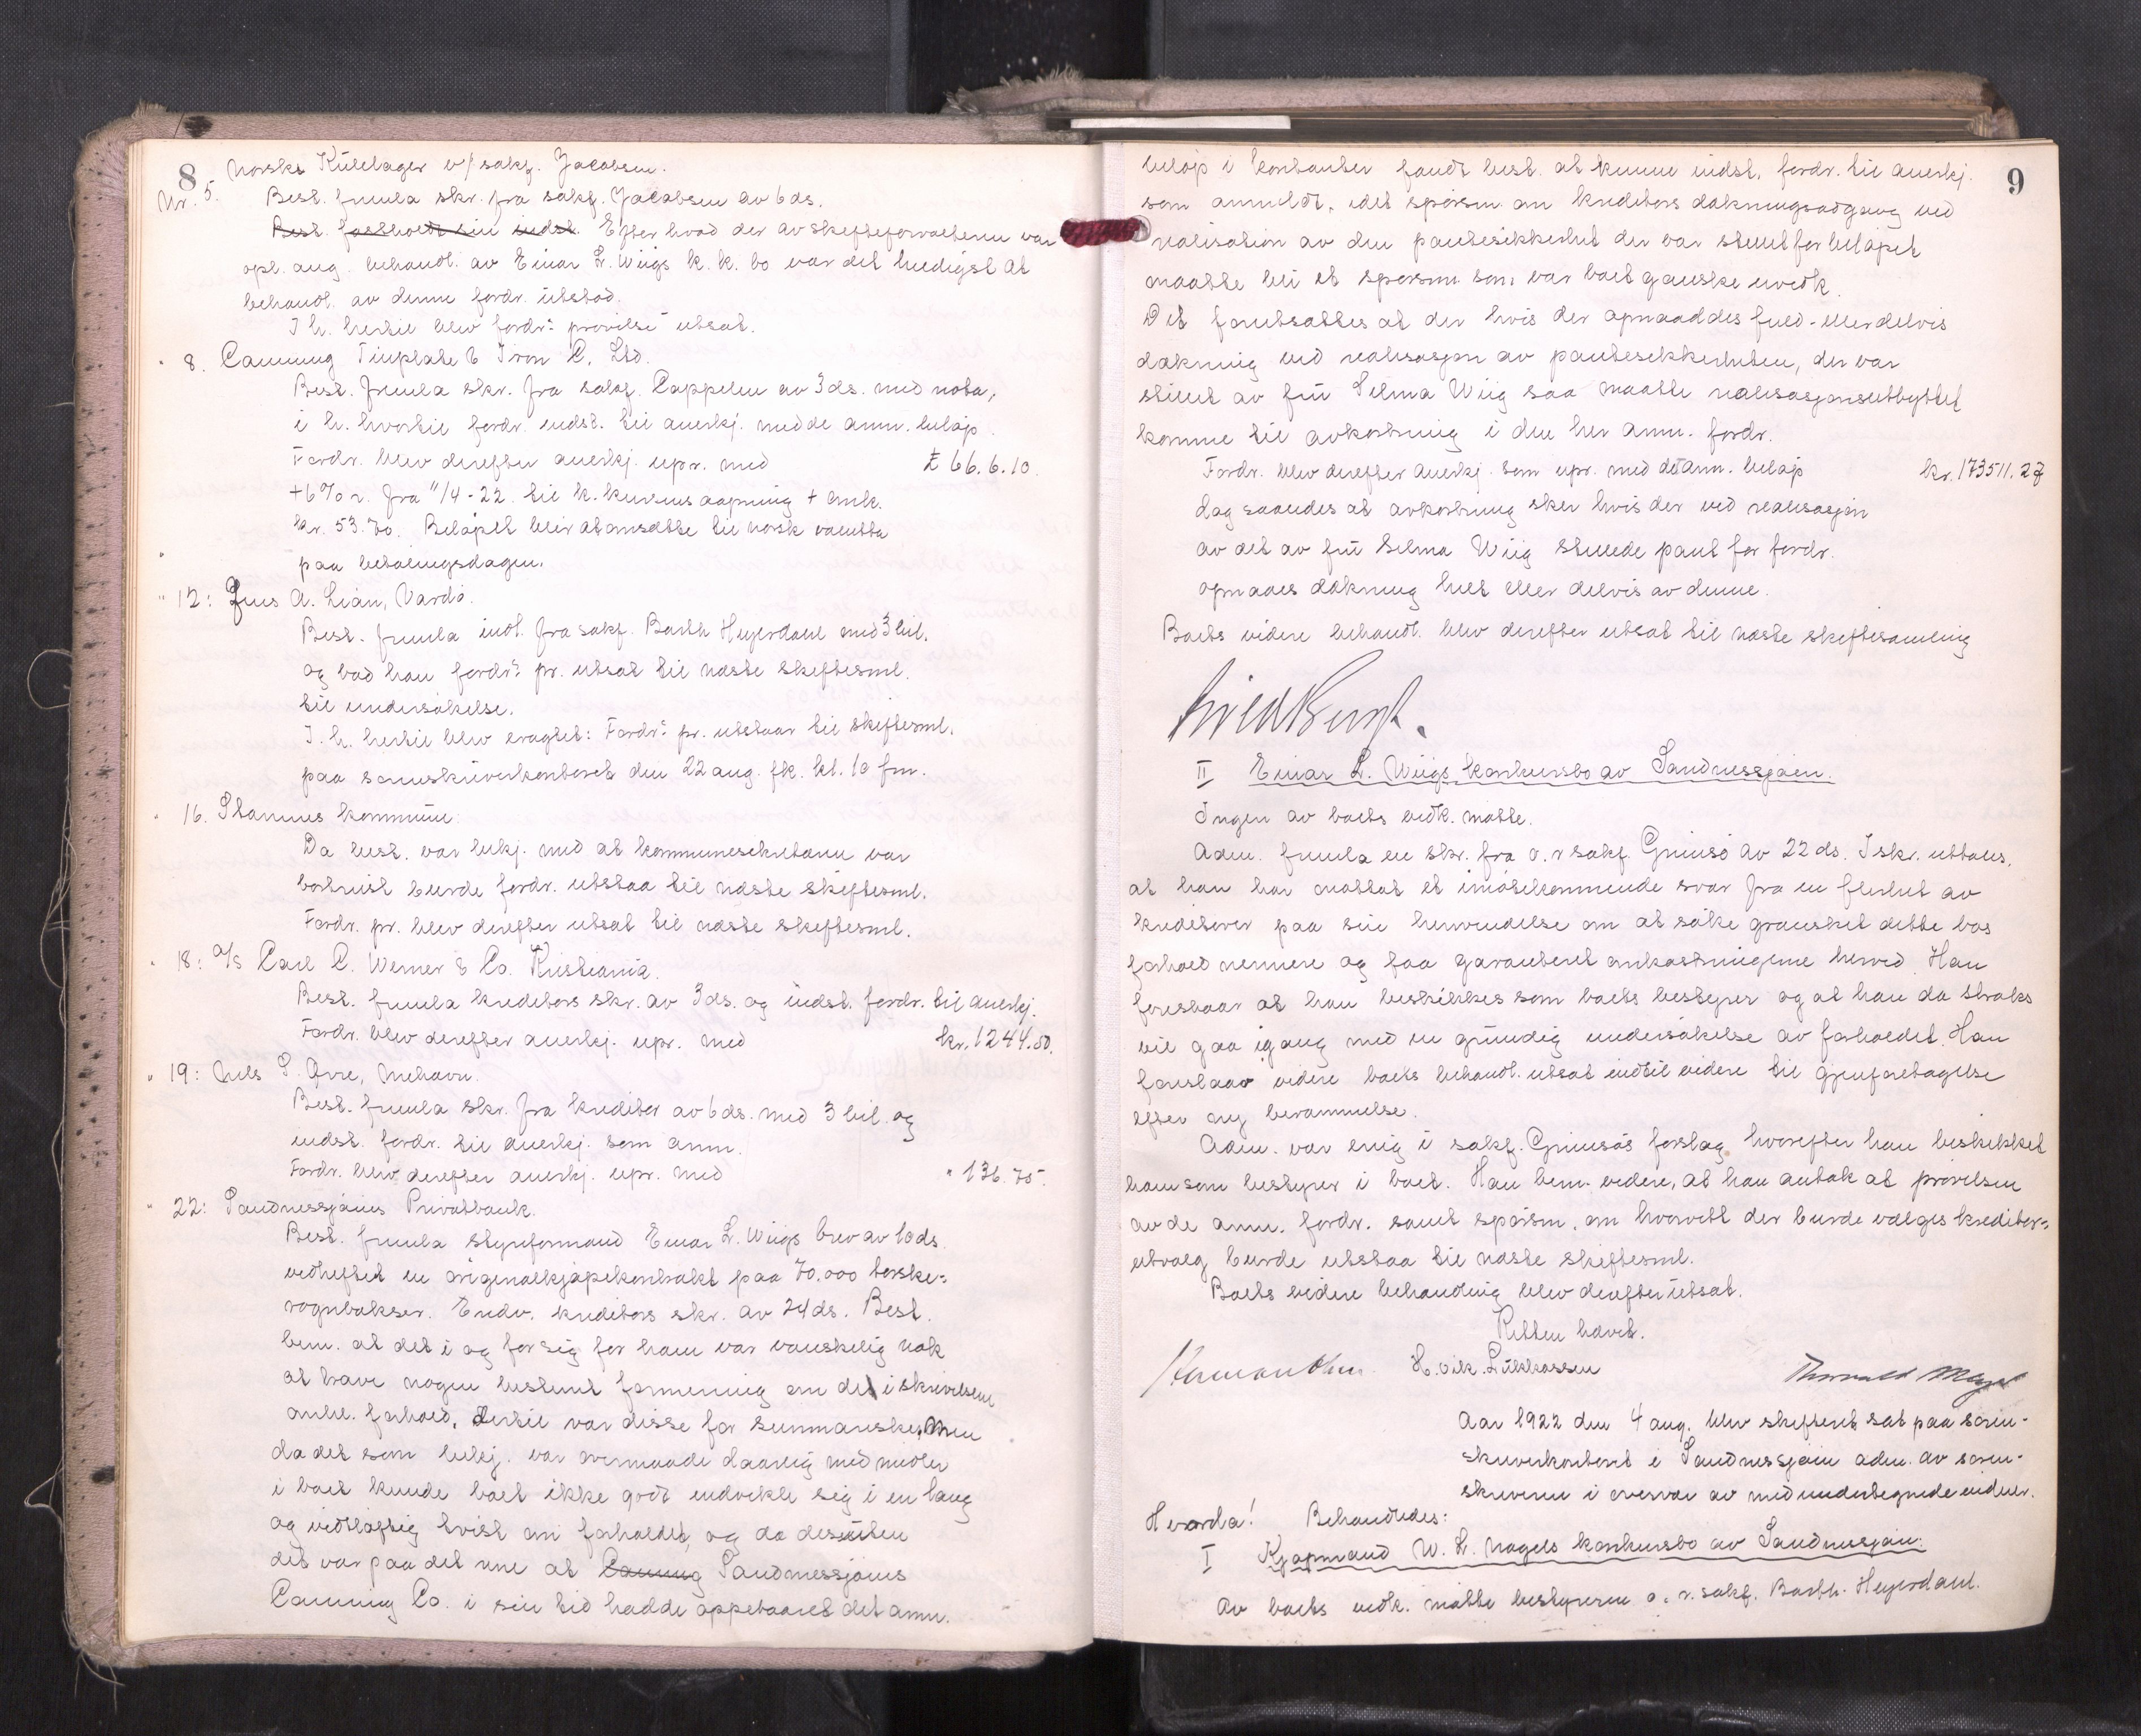 8
Norske Külelager v/ sakf. Jacobsen.
Nr. 5. Best. fremla skr. fra sakf. Jacobsen av 6 ds.
Best. fastholdt sin indst. Efter hvad der av skifteforvalteren var
opl. ang. behandl. av Einar L. Wiigs k. k. bo var det heldigst at
behandl. av denne fordr. utstod.
I h. hertil blev fordr⸗ prøvelse utsat.
" 8. Canning Tinplate & Iron C. Ltd.
Best. fremla skr. fra sakf. Cappelen av 3 ds. med nota,
i h. hvortil fordr. indst. til anerkj. med de anm. beløp.
Fordr. blev derefter anerkj. upr. med £ 66.6.10
+ 6% r. fra 11/4-22 til k. kursus aapning + omk.
kr. 53.70. Beløpet blir at omsætte til norsk valutta
paa betalingsdagen.
" 12: Jens A. Lian, Vardø.
Best. fremla indl. fra sakf. Barth Heyerdahl med 3 bil.
og bad han fordr⸗ pr. utsat til næste skiftesml.
til undersøkelse.
I. h. hertil blev eragtet: Fordr⸗ pr. utstaar til skiftesml.
paa sorenskriverkontoret den 22 aug. fk. kl. 10 fm.
" 16. Stamnes kommune.
Da best. var bekj. med at kommunesekretæren var
bortreist burde fordr. utstaa til næste skiftesml.
Fordr. pr. blev derefter utsat til næste skiftesml.
" 18: A/S Carl C. Werner & Co. Kristiania.
Best. fremla kreditors skr. av 3 ds. og indst. fordr. til anerkj.
Fordr. blev derefter anerkj. upr. med kr. 1244.50.
" 19: Nils S. Øvre, Mehavn.
Best. fremla skr. fra kreditor av 6 ds. med 3 bil. og
indst. fordr. til anerkj. som anm.
Fordr. blev derefter anerkj. upr. med " 136.75.
" 22: Sandnessjøens Privatbank.
Best. fremla styreformand Einar L. Wiigs brev av 10 ds.
vedheftet en originalkjøpekontrakt paa 70.000 torske⸗
rognbokser. Endv. kreditors skr. av 24 ds. Best.
bem. at det i og for sig for ham var vanskelig nok
at have nogen bestemt formening om det i skrivelsene
anbr. forhold, dertil var disse for summariske. Men
da det som bekj. var overmaade daarlig med midler
i boet kunde boet ikke godt indvikle sig i en lang
og vidtløftig tvist om forholdet, og da desuten
det var paa det rene at Canning Sandnessjøens
Canning Co. i sin tid hadde oppebaaret det anm.
9
beløp i kontanter fandt best. at kunne indst. fordr. til anerkj.
som anmeldt, idet spørsm. om kreditors dækningsadgang ved
realisation av den pantesikkerhet der var stillet for beløpet
maatte bli et spørsm. som var boet ganske uvedk.
Det forutsattes at der hvis der opnaaddes fuld- eller delvis
dækning ved realisasjon av pantesikkerheten, der var
stillet av fru Selma Wiig saa maatte realisasjonsutbyttet
komme til avkortning i den her anm. fordr.
Fordr. blev derefter anerkj. som upr. med det anm. beløp kr. 173511.27
dog saaledes at avkortning sker hvis der ved realisasjon
av det av fru Selma Wiig stillede pant for fordr.
opnaaes dækning helt eller delvis av denne.
Boets videre behandl. blev derefter utsat til næste skiftesamling
II Einar L. Wiigs konkursbo av Sandnessjøen.
Ingen av boets vedk. møtte.
Adm. fremla en skr. fra o. r sakf. Grimsø av 22 ds. I skr. uttales,
at han har mottat et imøtekommende svar fra en flerhet av
kreditorer paa sin henvendelse om at søke gransket dette bos
forhold nermere og faa garanteret omkostningene herved. Han
foreslaar at han beskikkes som boets bestyrer og at han da straks
vil gaa igang med en grundig undersøkelse av forholdet. Han
foreslaar videre boets behandl. utsat indtil videre til gjenforetagelse
efter ny berammelse.
Adm. var enig i sakf. Grimsøs forslag, hvorefter han beskikket
ham som bestyrer i boet. Han bem. videre, at han antok at prøvelsen
av de anm. fordr. samt spørsm. om hvorvidt der burde vælges kreditor⸗
utvalg burde utstaa til næste skiftesml.
Boets videre behandling blev derefter utsat.
Retten hævet.
H. Vilk. Lükkassen Thorvald Meyer
Aar 1922 den 4 aug. blev skifteret sat paa soren-
skriverkontoret i Sandnessjøen adm. av soren-
skriveren i overvær av medundertegnede vidner.
Hvorda! Behandledes:
I Kjøpmand W. L. Nagels konkursbo av Sandnessjøen.
Av boets vedk. møtte bestyreren o. r. sakf. Barth. Heyerdahl.